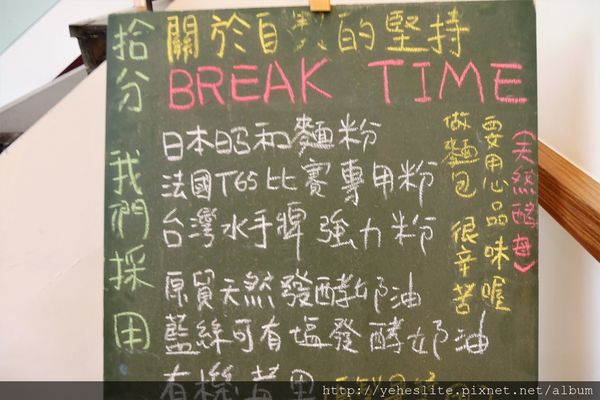 關於自然的堅持
BREAK TIME
拾分 我們採用
日本昭和麵粉
法國T65比賽專用粉
台灣水手牌強力粉
原貿天然發酵奶油
藍絲可有塩發酵奶油
有機
(天然酵母)
要用心品味喔
做麵包 很辛苦
http://yeheslite.pixnet.net/album